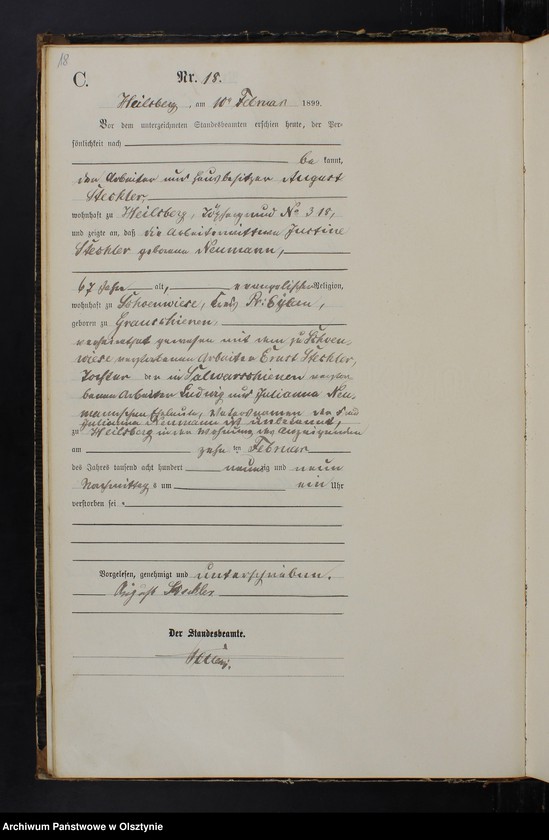 18
C.
Nr. 18.
Heilsberg, am 10ten Februar 1899.
Vor dem unterzeichneten Standesbeamten erschien heute, der Per-
sönlichkeit nach
be kannt,
der Arbeiter und Hausbesitzer August
Stechler,
wohnhaft zu Heilsberg, No 318,
und zeigte an, daß die Arbeiterwittwe Justine
Stechler geborene Neumann,
67 Jahre alt, evangelischer Religion,
wohnhaft zu Schoenwiese, Kreis Pr: Eylau,
geboren zu
verheirathet gewesen mit dem zu Schoen-
wiese verstorbenen Arbeiter Ernst Stechler,
Tochter der in verstor-
benen Arbeiter Ludwig und Julianna Neu-
mannschen Eheleute, Vatersnamen der
Julianna Neumann ist unbekannt,
zu Heilsberg in der Wohnung des Anzeigenden
am zehnten Februar
des Jahres tausend acht hundert neunzig und neun
Nachmittags um ein Uhr
verstorben sei.
Vorgelesen, genehmigt und unterschrieben.
August Stechler
Der Standesbeamte.
Archiwum Państwowe w Olsztynie